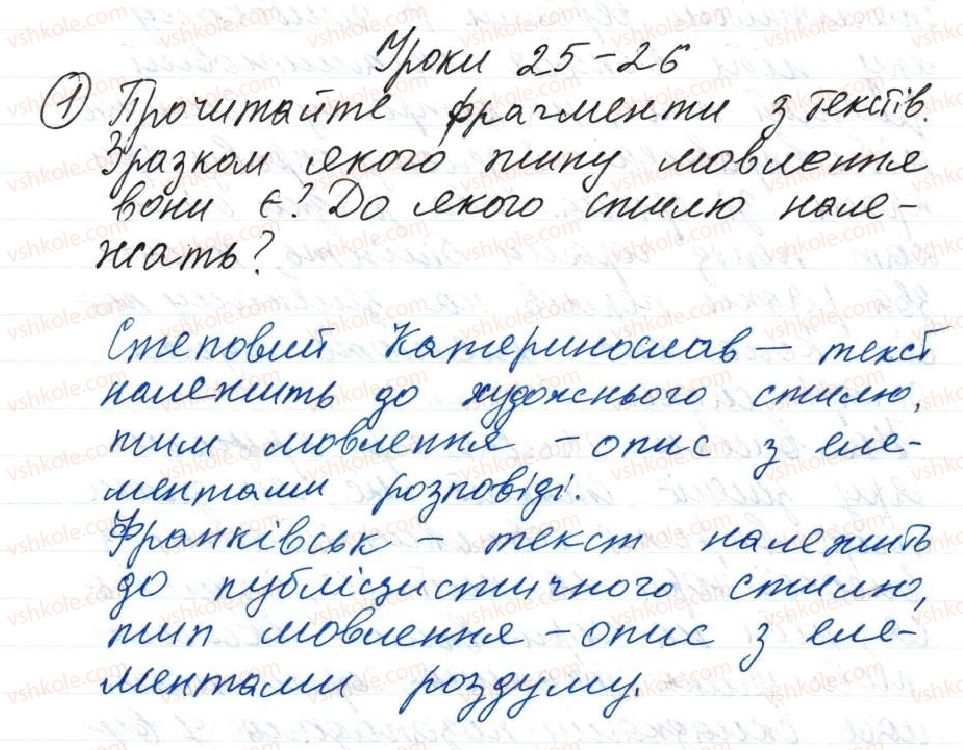 Уроки 25-26
1 Прочитайте фрагменти з текстів.
Зразком якого типу мовлення
вони є? До якого стилю нале-
жать?
Степовий Катеринослав – текст
належить до художнього стилю,
тим мовлення – опис з еле-
ментами розповіді.
Франківськ – текст належить
до публіцистичного стилю,
тип мовлення – опис з еле-
ментами роздуму.